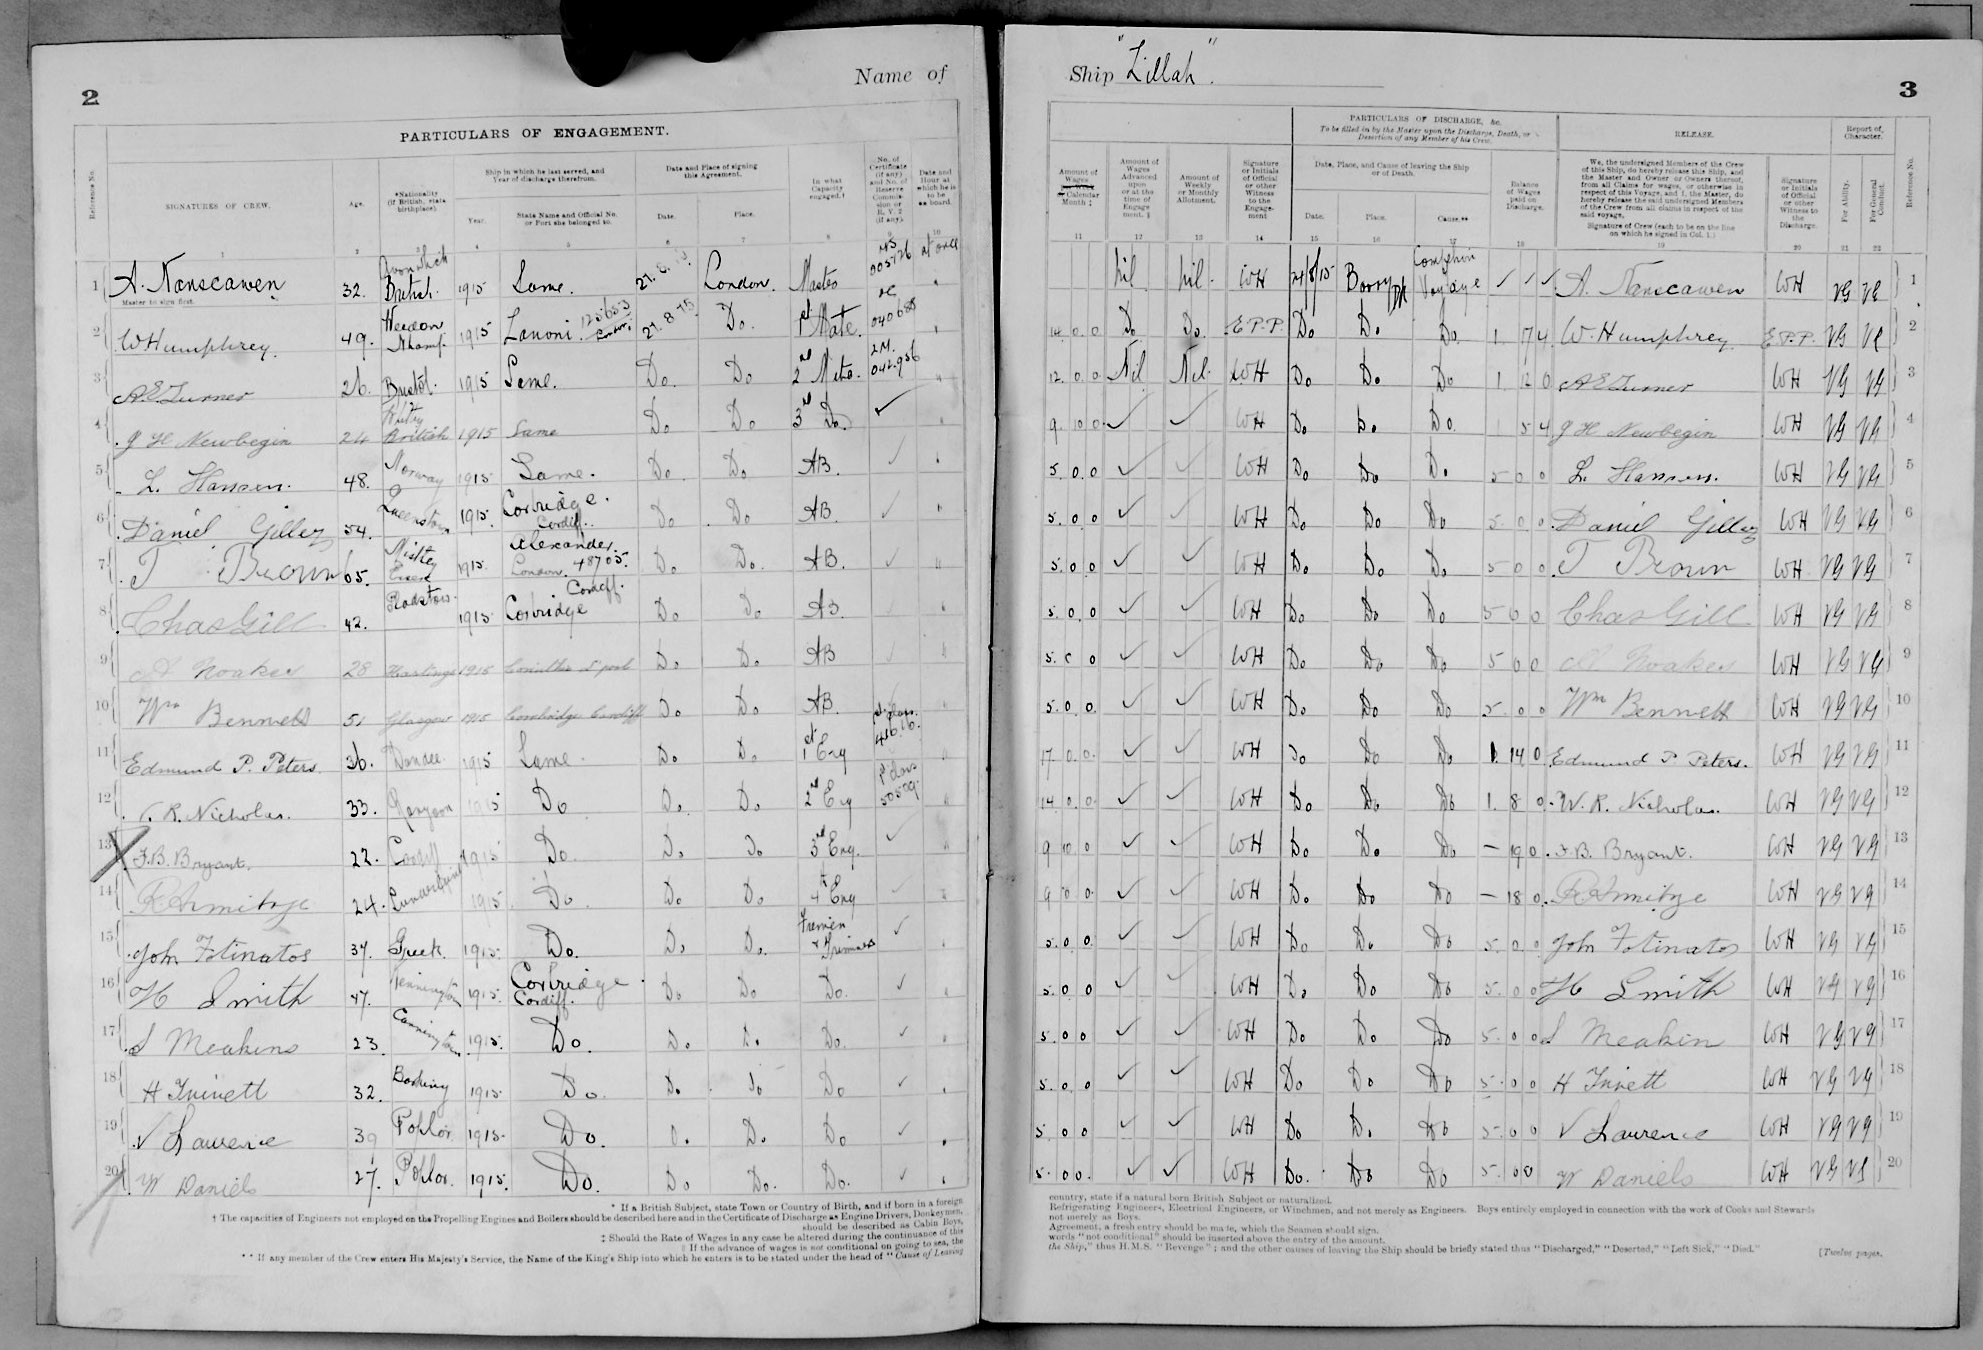 2
Name of
PARTICULARS OF ENGAGEMENT.
Reference No.
SIGNATURES OF CREW.
Age.
*Nationality (if British, state birthplace).
Ship in which he last served, and Year of discharge therefrom.
Year.
State Name and Official No. or Port she belonged to.
Date and Place of signing this Agreement.
Date.
Place.
In what Capacity engaged.†
No. of Certificate (if any) and No. of Reserve Commission or R.V. 2 (if any).
Date and Hour at which he is to be on board.
1 2 3 4 5 6 7 8 9 10
1 A. Nanscawen 32. British. 1915 Same. London. Master at once
Master to sign first.
2 W Humphrey 49. 1915 Lanoni 125653 21.8.15 Do. 1st Mate. 040688
3 A.E. Turner 26. Bristol. 1915 Same. Do. Do 2nd Mate. 042956
4 J H Newbegin 24 British 1915 Same Do Do 3rd Do ✓
5 L. Hansen. 48. Norway 1915 Same. Do Do. AB. ✓
6 Daniel 54. Queenstown 1915. Corbridge. Cardiff. Do Do AB. ✓
7 T Brown 65. 1915. Alexander. London. 48705. Do Do. AB. ✓
8 Chas Gill 42. Padstow. 1915 Corbridge Cardiff. Do Do AB.
9 Noakes 28 Hastings 1915 Do Do. AB
10 Wm Bennett 51 Glasgow 1915 Corbridge Cardiff Do Do. AB.
11 Edmund P. Peters. 36. Dundee. 1915 Same. Do Do. 1st Eng
12 R. Nicholas. 33. Rangoon 1915 Do Do. Do. 2nd Eng 50509
13 F.B. Bryant. 22. Cardiff 1915 Do. Do Do 3rd Eng. ✓
14 R Armitage 24. 1915 Do. Do. Do. 4th Eng ✓
15 John Fotinatos 37. Greek. 1915. Do. Do Do. Firemen & Trimmers ✓
16 H Smith 47. Kennington 1915. Corbridge Cardiff. Do Do Do. ✓
17 S Meakins 23. 1915. Do. Do. Do. Do. ✓
18 H Trinett 32. 1915. Do. Do. Do Do ✓
19 V Lawrence 39 Poplar 1915. Do. Do. Do. Do ✓
20 W Daniels 27. Poplar. 1915. Do. Do Do. Do. ✓
* If a British Subject, state Town or Country of Birth, and if born in a foreign
† The capacities of Engineers not employed on the Propelling Engines and Boilers should be described here and in the Certificate of Discharge as Engine Drivers, Donkeymen,
should be described as Cabin Boys,
‡ Should the Rate of Wages in any case be altered during the continuance of this
If the advance of wages is not conditional on going to sea, the
** If any member of the Crew enters His Majesty's Service, the Name of the King's Ship into which he enters is to be stated under the head of "Cause of Leaving
Ship "Lillah".
3
Amount of Wages Calendar Month ‡
Amount of Wages Advanced upon or at the time of Engagement. §
Amount of Weekly or Monthly Allotment.
Signature or Initials of Official or other Witness to the Engagement
PARTICULARS OF DISCHARGE, &c.
To be filled in by the Master upon the Discharge, Death, or Desertion of any Member of his Crew.
Date, Place, and Cause of leaving the Ship or of Death.
Date.
Place.
Cause.**
Balance of Wages paid on Discharge.
RELEASE.
We, the undersigned Members of the Crew of this Ship, do hereby release this Ship, and the Master and Owner or Owners thereof, from all Claims for wages, or otherwise in respect of this Voyage, and I, the Master, do hereby release the said undersigned Members of the Crew from all claims in respect of the said voyage.
Signature of Crew (each to be on the line on which he signed in Col. 1.)
Signature or Initials of Official or other Witness to the Discharge.
Report of Character.
For Ability.
For General Conduct.
Reference No.
11 12 13 14 15 16 17 18 19 20 21 22
Nil Nil. WH 24/8/15 Barry Dk Voyage ✓ ✓ ✓ A. Nanscawen WH VG VG 1
14 0 0 Do Do. E.P.P. Do Do Do. 1. 17 4 W. Humphrey E.P.P. VG VG 2
12. 0 0 Nil Nil. WH Do Do. Do 1. 12 0 AE Turner WH VG VG 3
9. 10 0 ✓ ✓ WH Do Do. Do. 5 4 J H Newbegin WH VG VG 4
5. 0. 0 ✓ ✓ WH Do Do Do. 5 0 0 L. Hansen. WH VG VG 5
5. 0 0 ✓ ✓ WH Do Do Do 5. 0 0 Daniel WH VG VG 6
5. 0 0 ✓ ✓ WH Do Do Do 5 0 0 T Brown WH VG VG 7
5. 0 0 ✓ ✓ WH Do Do Do 5 0 0 Chas Gill WH VG VG 8
5. 0 0 ✓ ✓ WH Do Do Do 5 0 0 Noakes WH VG VG 9
5. 0. 0. ✓ ✓ WH Do Do Do 5. 0 0 Wm Bennett WH VG VG 10
17. 0. 0. ✓ ✓ WH Do Do Do 1. 14 0 Edmund P Peters. WH VG VG 11
14 0. 0. ✓ ✓ WH Do Do Do 1. 8 0. W. R. Nicholas. WH VG VG 12
9 10 0 ✓ ✓ WH Do Do. Do — 19 0. F.B. Bryant. WH VG VG 13
9 0. 0. ✓ ✓ WH Do Do Do — 18 0. R Armitage WH VG VG 14
5. 0 0 ✓ ✓ WH Do Do. Do 5. 0 0 John Fotinatos WH VG VG 15
5. 0 0 ✓ ✓ WH Do Do Do 5. 0 0 H Smith WH VG VG 16
5. 0 0 ✓ ✓ WH Do Do Do 5. 0 0 S Meakin WH VG VG 17
5. 0 0 ✓ ✓ WH Do Do Do 5. 0 0 H Trinett WH VG VG 18
5. 0 0 ✓ ✓ WH Do Do. Do 5. 0 0 V Lawrence WH VG VG 19
5. 0 0. ✓ ✓ WH Do. Do Do 5. 0 0 W Daniels WH VG VG 20
country, state if a natural born British Subject or naturalized.
Refrigerating Engineers, Electrical Engineers, or Winchmen, and not merely as Engineers. Boys entirely employed in connection with the work of Cooks and Stewards
not merely as Boys.
Agreement, a fresh entry should be made, which the Seamen should sign.
words "not conditional" should be inserted above the entry of the amount.
the Ship," thus H.M.S. "Revenge"; and the other causes of leaving the Ship should be briefly stated thus "Discharged," "Deserted," "Left Sick," "Died."
[Twelve pages.